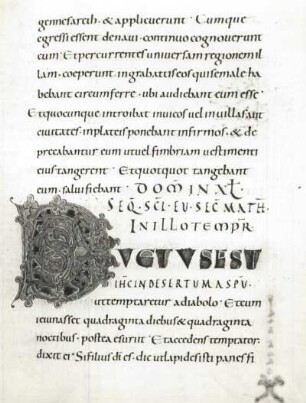 gennesareth · & applicuerunt · Cumque
egressi essent de navi · continuo cognoverunt
eum · Et percurrentes universam regionem il
lam · coeperunt in grabattis eos qui se male ha
bebant circumferre · ubi audiebant eum esse ·
Et quocunque introibat in vicos vel in villas aut
civitates · in plateis ponebant infirmos · & de
precabantur eum ut vel fimbriam vestimenti
eius tangerent · Et quotquot tangebant
eum · salvi fiebant · DOM IN XL
SEQ · SCI · EV · SEC MATH ·
IN ILLO TEMPR
DUCTUS EST
IHC IN DESERTUM A SPU ·
ut temptaretur a diabolo · Et cum
ieiunasset quadraginta diebus & quadraginta
noctibus · postea esuriit · Et accedens temptator ·
dixit ei · Si filius di es · dic ut lapides isti panes fi